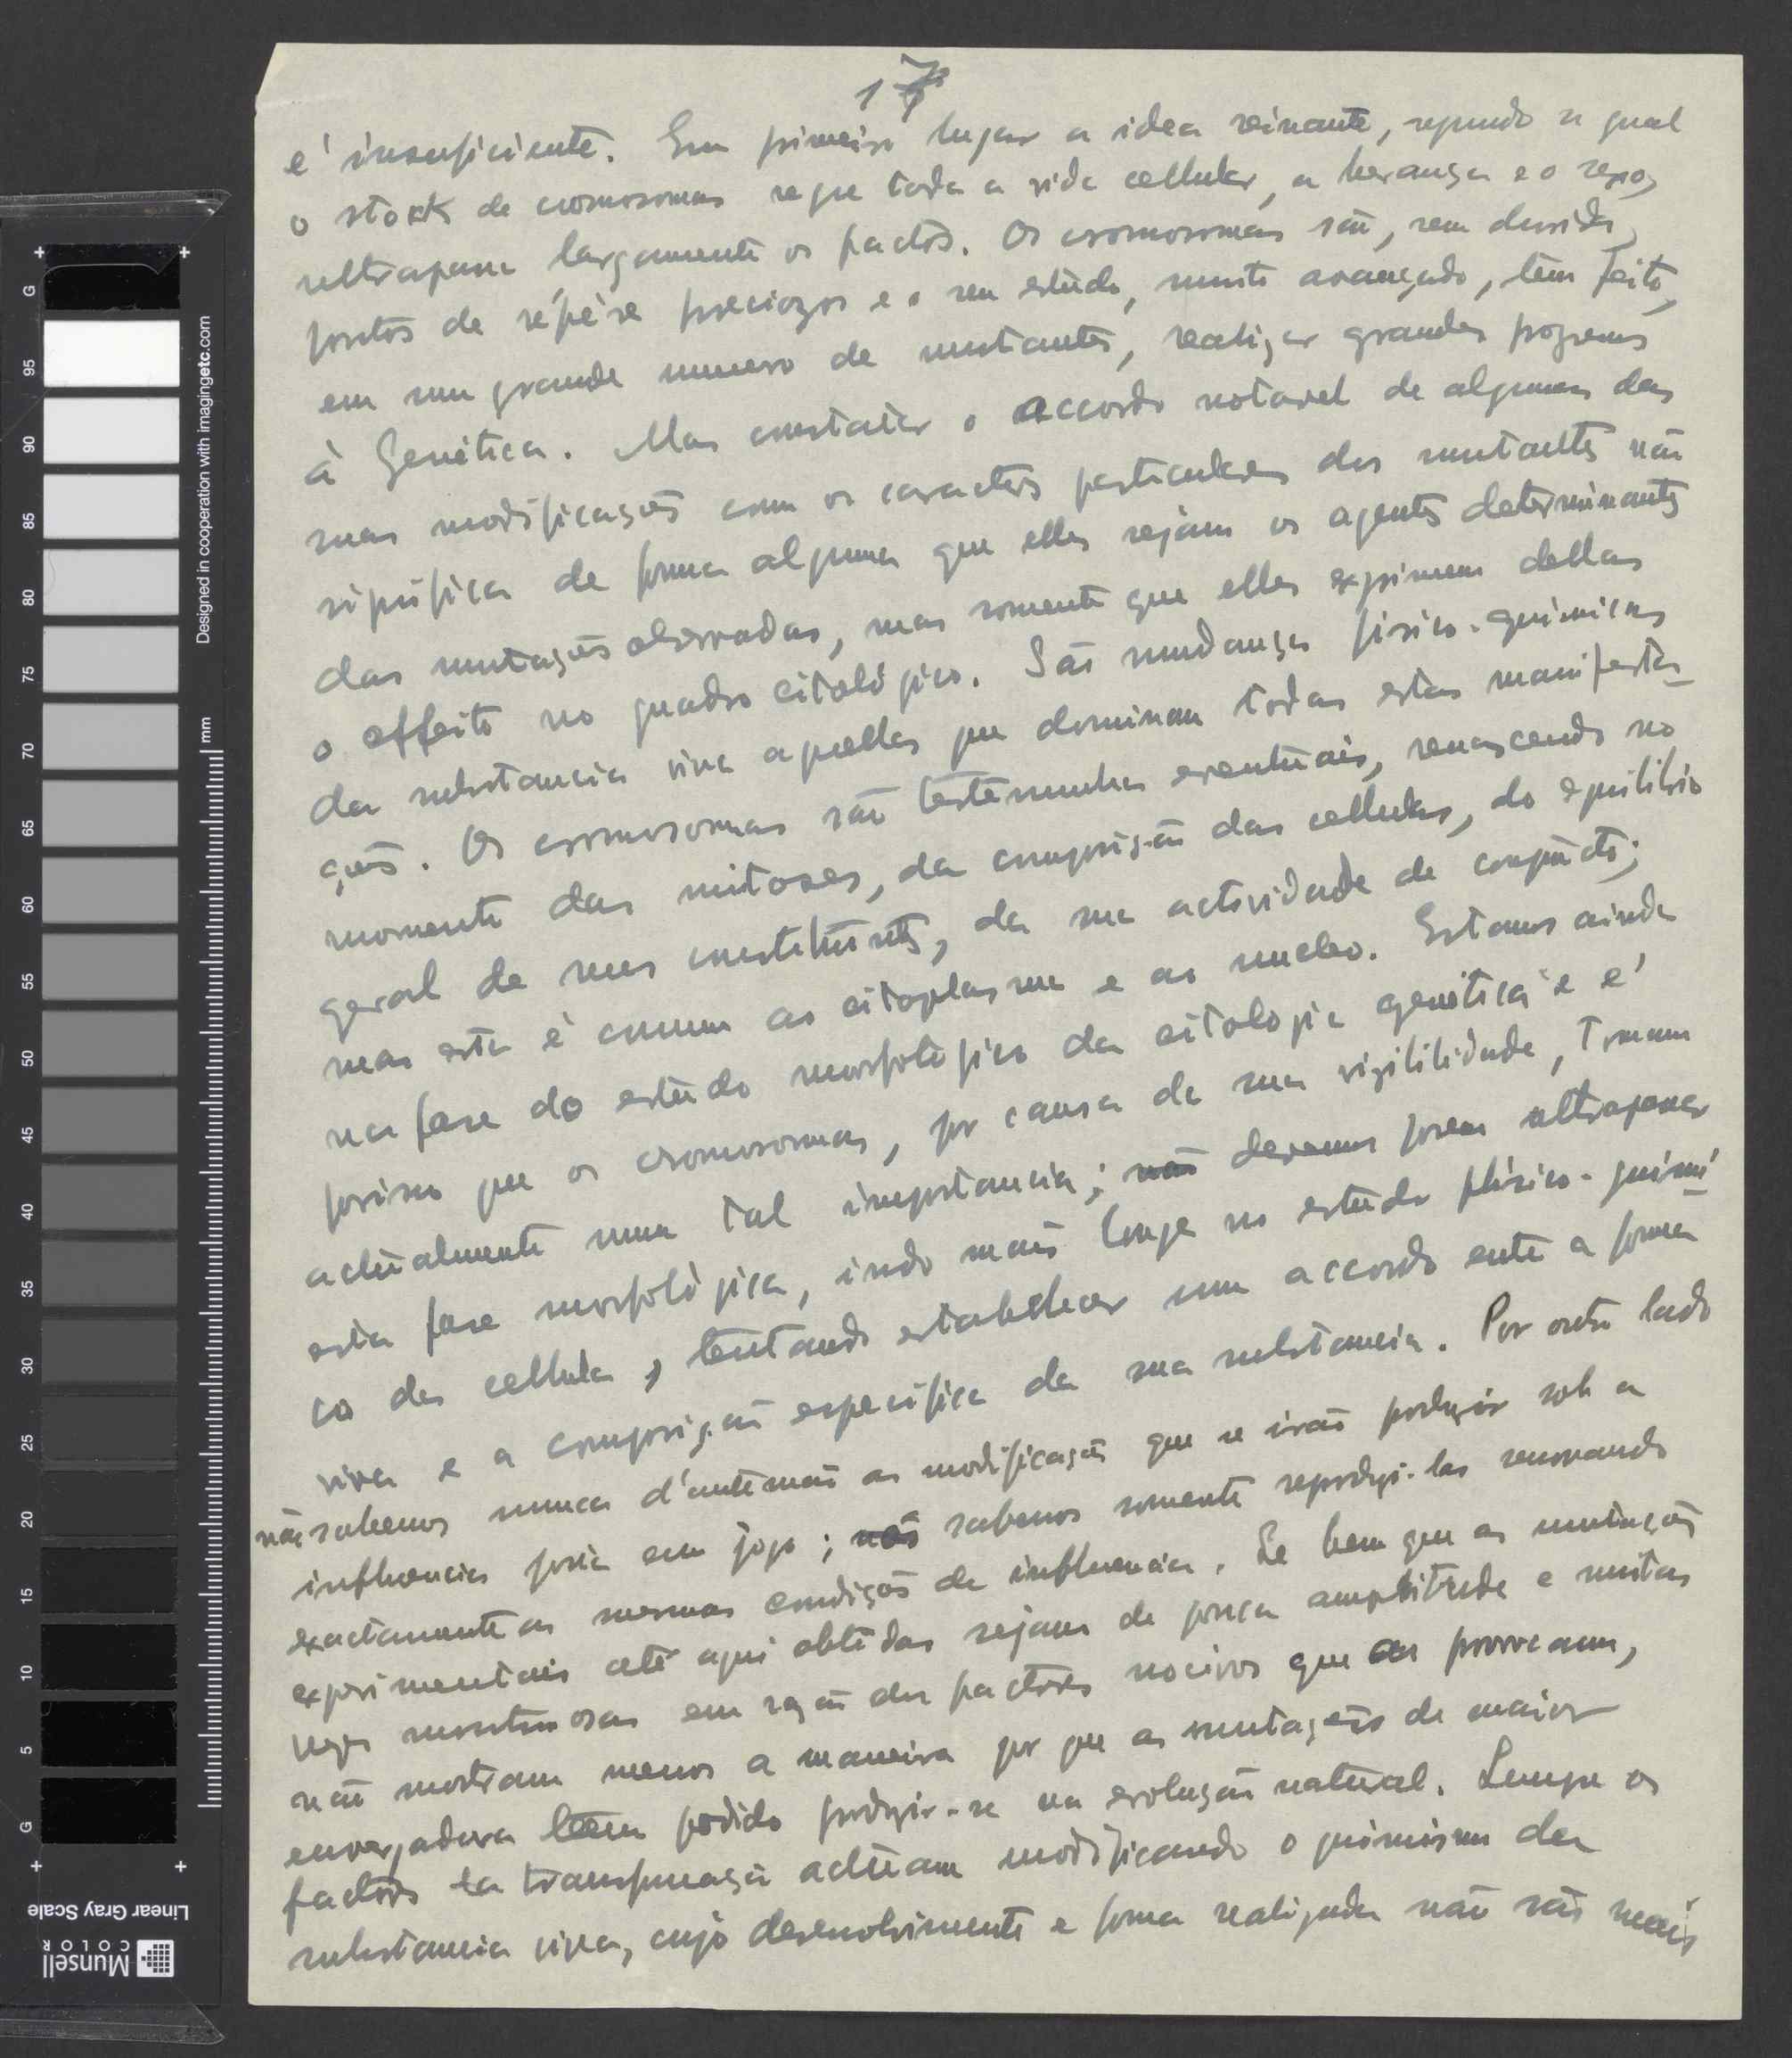 17
é insuficiente. Em primeiro lugar a idea reinante, segundo a qual
o stock de cromosomas rege toda a vida cellular, a herança e o sexo,
ultrapassa largamente os factos. Os cromosomas são, sem duvida,
pontos de répère preciozos e o seu estudo, muito avançado, tem feito,
em um grande numero de mutantes, realizar grandes progressos
à Genética. Mas constatar o accordo notavel de algumas das
suas modificações com os caracteres particulares dos mutantes não
significa de forma alguma que elles sejam os agentes determinantes
das mutações observadas, mas somente que elles exprimem dellas
o effeito no quadro citológico. São mudanças fisico-quimicas
da substancia viva aquellas que dominam todas estas manifesta-
ções. Os cromosomas são testemunhas eventuais, renascendo no
momento das mitoses, da composição das cellulas, do equilibrio
geral de seus constituintes, da sua actividade de conjuncto;
mas esta é comum ao citoplasma e ao nucleo. Estamos ainda
na fase do estudo morfológico da citologia genética e é
porisso que os cromosomas, por causa de sua visibilidade, tomam
actualmente uma tal importancia; devemos porem ultrapassar
esta fase morfológica, indo mais longe no estudo phisico-quimi-
co da cellula, tentando estabelecer um accordo entre a forma
viva e a composição especifica da sua substancia. Por outro lado
não sabemos nunca d'antemão as modificações que se irão produzir sob a
influencia posta em jogo; sabemos somente reproduzi-las renovando
exactamente as mesmas condições de influencia. Se bem que as mutações
experimentais até aqui obtidas sejam de pouca amplitude e muitas
vezes monstruosas em razão dos factores nocivos que as provocam,
não mostram menos a maneira por que as mutações de maior
envergadura têm podido produzir-se na evolução natural. Sempre os
factores da transformação actuam modificando o quimismo da
substancia viva, cujo desenvolvimento e forma realizada não são mais